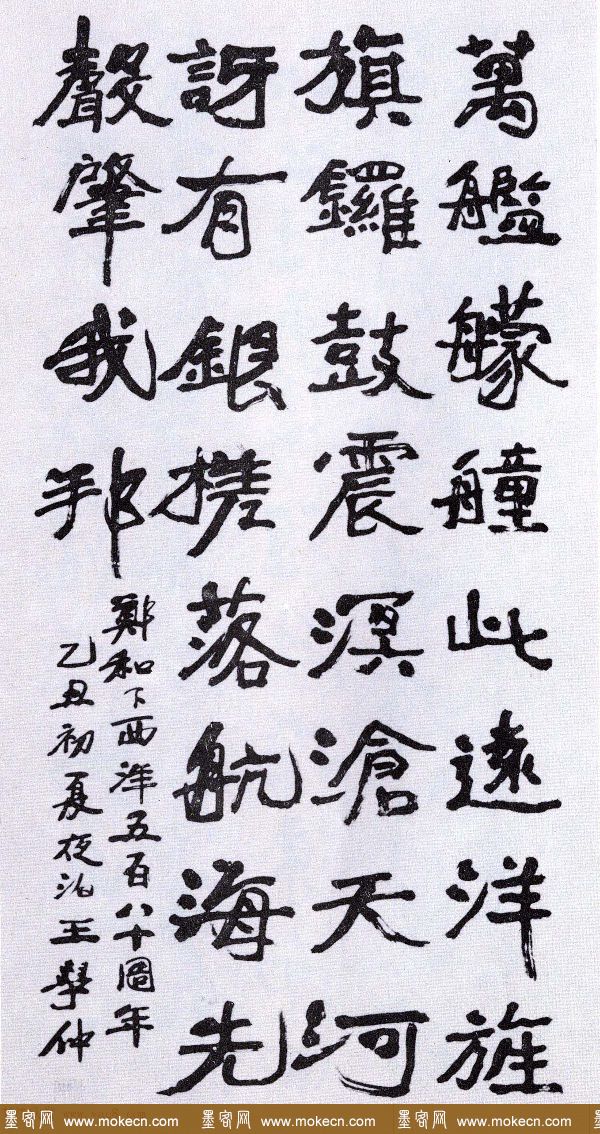 萬艦艨艟此遠洋旌
旗鑼鼓震溟滄天河
訝有銀槎落航海先
聲肇我邦
鄭和下西洋五百八十周年
乙丑初夏夜泊王學仲
墨客网 www.mokecn.com 墨客网 www.mokecn.com 墨客网 www.mokecn.com